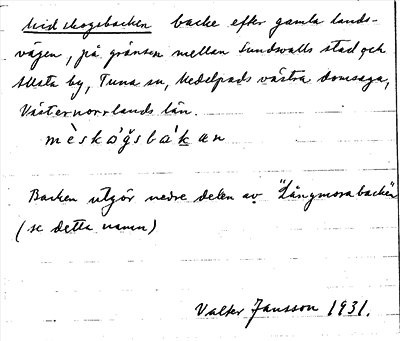 Midskogsbacken backe efter gamla lands-
vägen, på gränsen mellan Sundsvalls stad och
Allsta by, Tuna sn, Medelpads västra domsaga,
Västernorrlands län.
mèskógsbákan
Backen utgör nedre delen av "Långmorabacken"
(se detta namn)
Valter Jansson 1931.